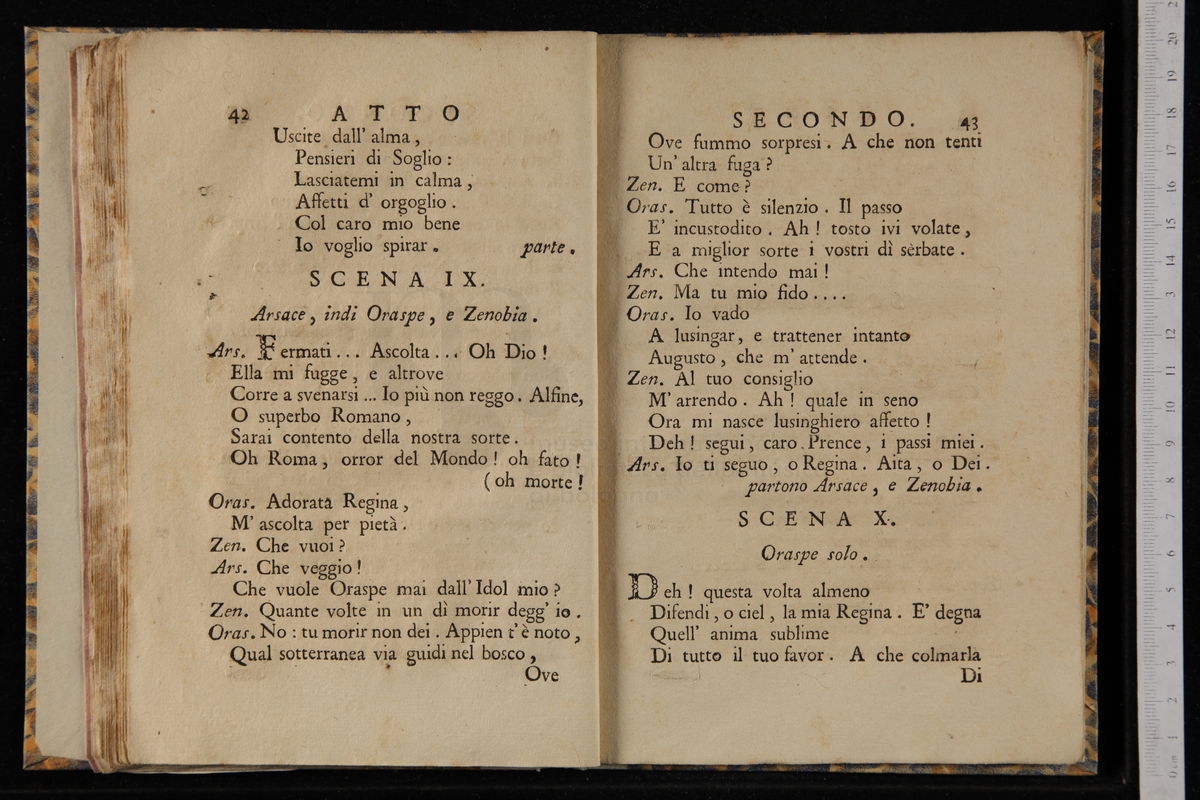 42 ATTO
Uscite dall' alma,
Pensieri di Soglio:
Lasciatemi in calma,
Affetti d' orgoglio.
Col caro mio bene
Io voglio spirar. parte.
SCENA IX.
Arsace, indi Oraspe, e Zenobia.
Ars. Fermati... Ascolta... Oh Dio!
Ella mi fugge, e altrove
Corre a svenarsi... Io più non reggo. Alfine,
O superbo Romano,
Sarai contento della nostra sorte.
Oh Roma, orror del Mondo! oh fato!
(oh morte!
Oras. Adorata Regina,
M' ascolta per pietà.
Zen. Che vuoi?
Ars. Che veggio!
Che vuole Oraspe mai dall' Idol mio?
Zen. Quante volte in un dì morir degg' io.
Oras. No: tu morir non dei. Appien t' è noto,
Qual sotterranea via guidi nel bosco,
Ove
SECONDO. 43
Ove fummo sorpresi. A che non tenti
Un' altra fuga?
Zen. E come?
Oras. Tutto è silenzio. Il passo
E' incustodito. Ah! tosto ivi volate,
E a miglior sorte i vostri dì serbate.
Ars. Che intendo mai!
Zen. Ma tu mio fido....
Oras. Io vado
A lusingar, e trattener intanto
Augusto, che m' attende.
Zen. Al tuo consiglio
M' arrendo. Ah! quale in seno
Ora mi nasce lusinghiero affetto!
Deh! segui, caro Prence, i passi miei.
Ars. Io ti seguo, o Regina. Aita, o Dei.
partono Arsace, e Zenobia.
SCENA X.
Oraspe solo.
Deh! questa volta almeno
Difendi, o ciel, la mia Regina. E' degna
Quell' anima sublime
Di tutto il tuo favor. A che colmarla
Di
0 cm 1 2 3 4 5 6 7 8 9 10 11 12 13 14 15 16 17 18 19 20